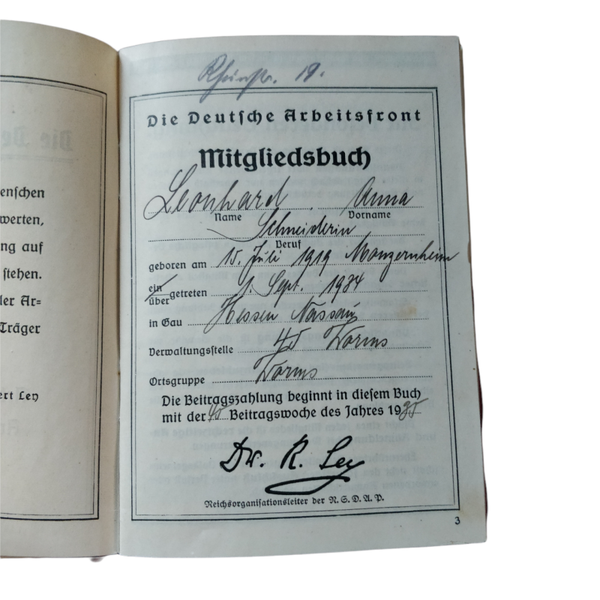 enschen
werten,
ng auf
stehen.
ler Ar-
Träger
ert Ley
Rheinstr. 19.
Die Deutsche Arbeitsfront
Mitgliedsbuch
Leonhard Anna
Name Vorname
Schneiderin
Beruf
geboren am 15. Juli 1919 Monzernheim
ein
über getreten 1. Sept. 1934
in Gau Hessen Nassau
Verwaltungsstelle 45 Worms
Ortsgruppe Worms
Die Beitragszahlung beginnt in diesem Buch
mit der Beitragswoche des Jahres 19
Dr. R. Ley
Reichsorganisationsleiter der N.S.D.A.P.
3